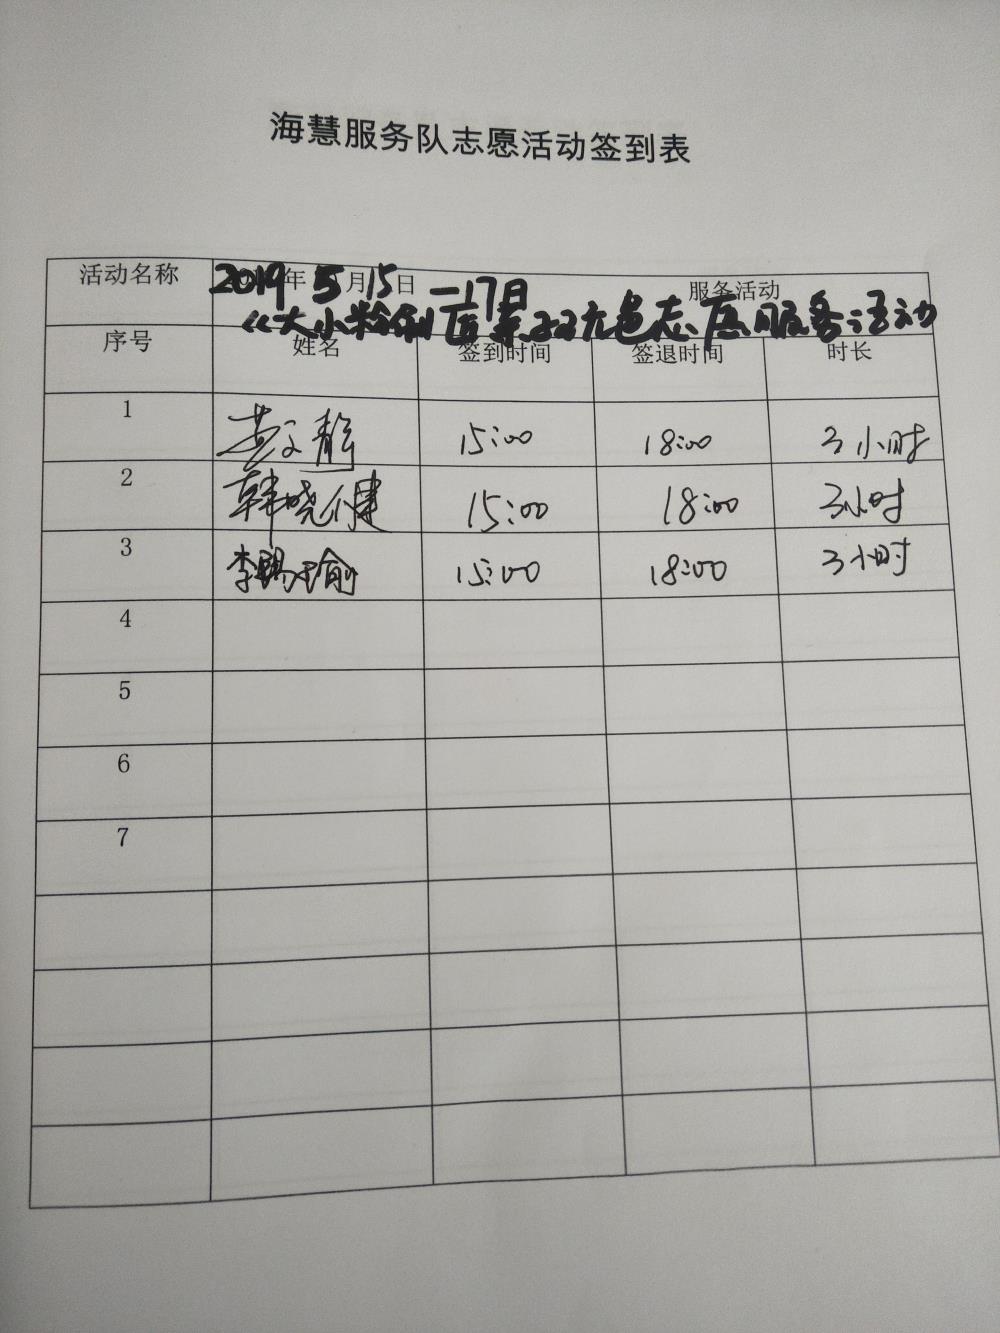 海慧服务队志愿活动签到表
活动名称 2019年5月15日—17日 服务活动
《大小粉刷匠 志愿服务活动
序号 姓名 签到时间 签退时间 时长
1 黄文静 15:00 18:00 3小时
2 韩晓健 15:00 18:00 3小时
3 李 瑜 15:00 18:00 3小时
4
5
6
7